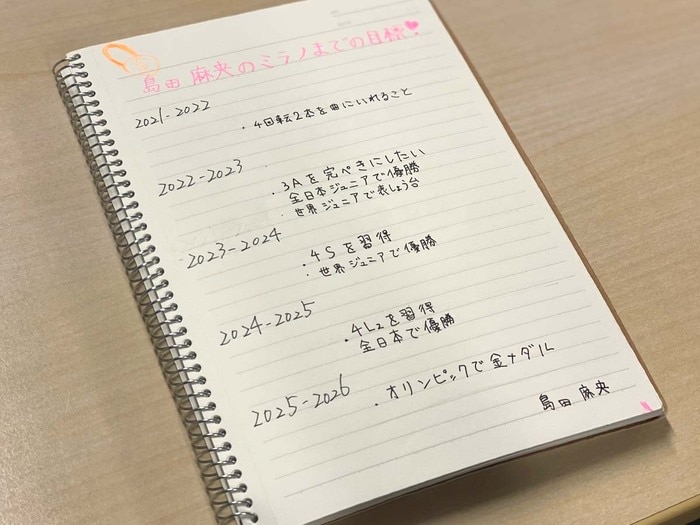 島田 麻央のミラノまでの目標!
2021-2022
・4回転2本を曲にいれること
2022-2023
・3Aを完ぺきにしたい
全日本ジュニアで優勝
・世界ジュニアで表しょう台
2023-2024
・4Sを習得
・世界ジュニアで優勝
2024-2025
・4Lzを習得
全日本で優勝
2025-2026
・オリンピックで金メダル
島田 麻央